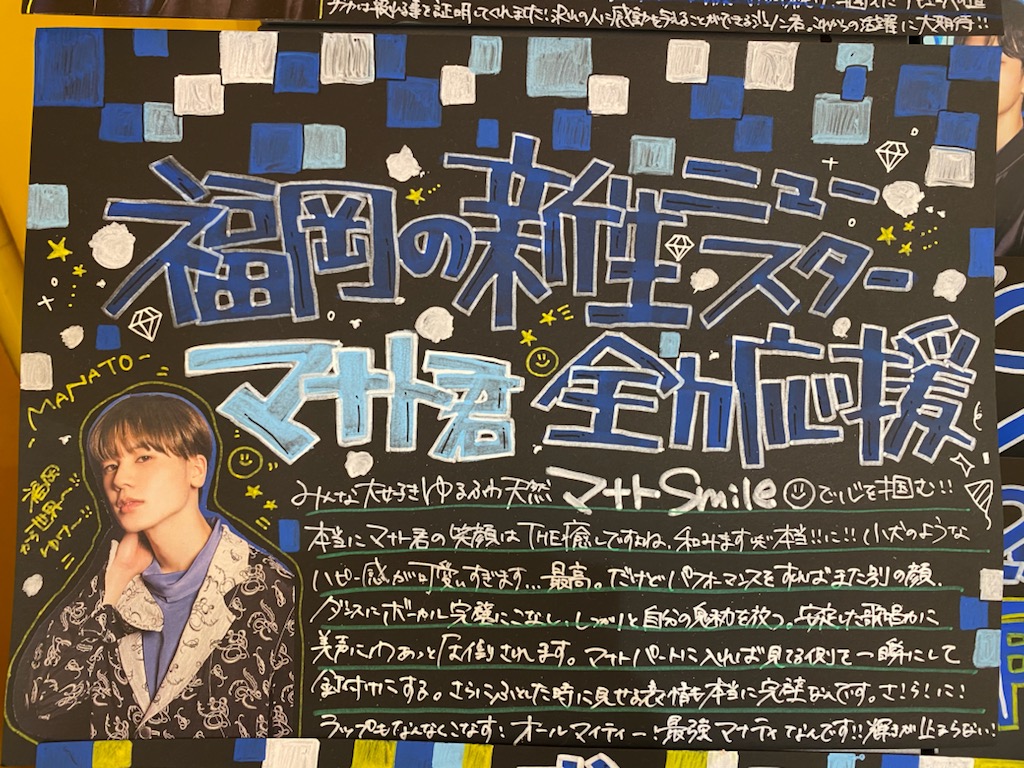 を証明してくれました!
これからの活躍に大期待!!
福岡の新生ニュー
スター
マナト君 全力応援
-MANATO-
福岡
から世界へ…!!
みんな大好きゆるふわ天然 マナトSmile で심を掴む!!
本当にマナト君の笑顔はTHE癒しですよね、和みます 本当!!に!! 小犬のような
ハピー感が可愛いすぎます...最高。だけどパフォーマンスをすればまた別の顔、
ダンスにボーカル完璧にこなし、しっかりと自分の魅力を放つ。安定した歌唱力に
美声にわぁっと圧倒されます。マナトパートに入れば見てる側を一瞬にして
釘付けにする。さらにふとした時に見せる表情も本当に完璧なんです。さ!ら!に!
ラップもなんなくこなす!オールマイティー!最強マナティなんです!!輝きが止まらない!